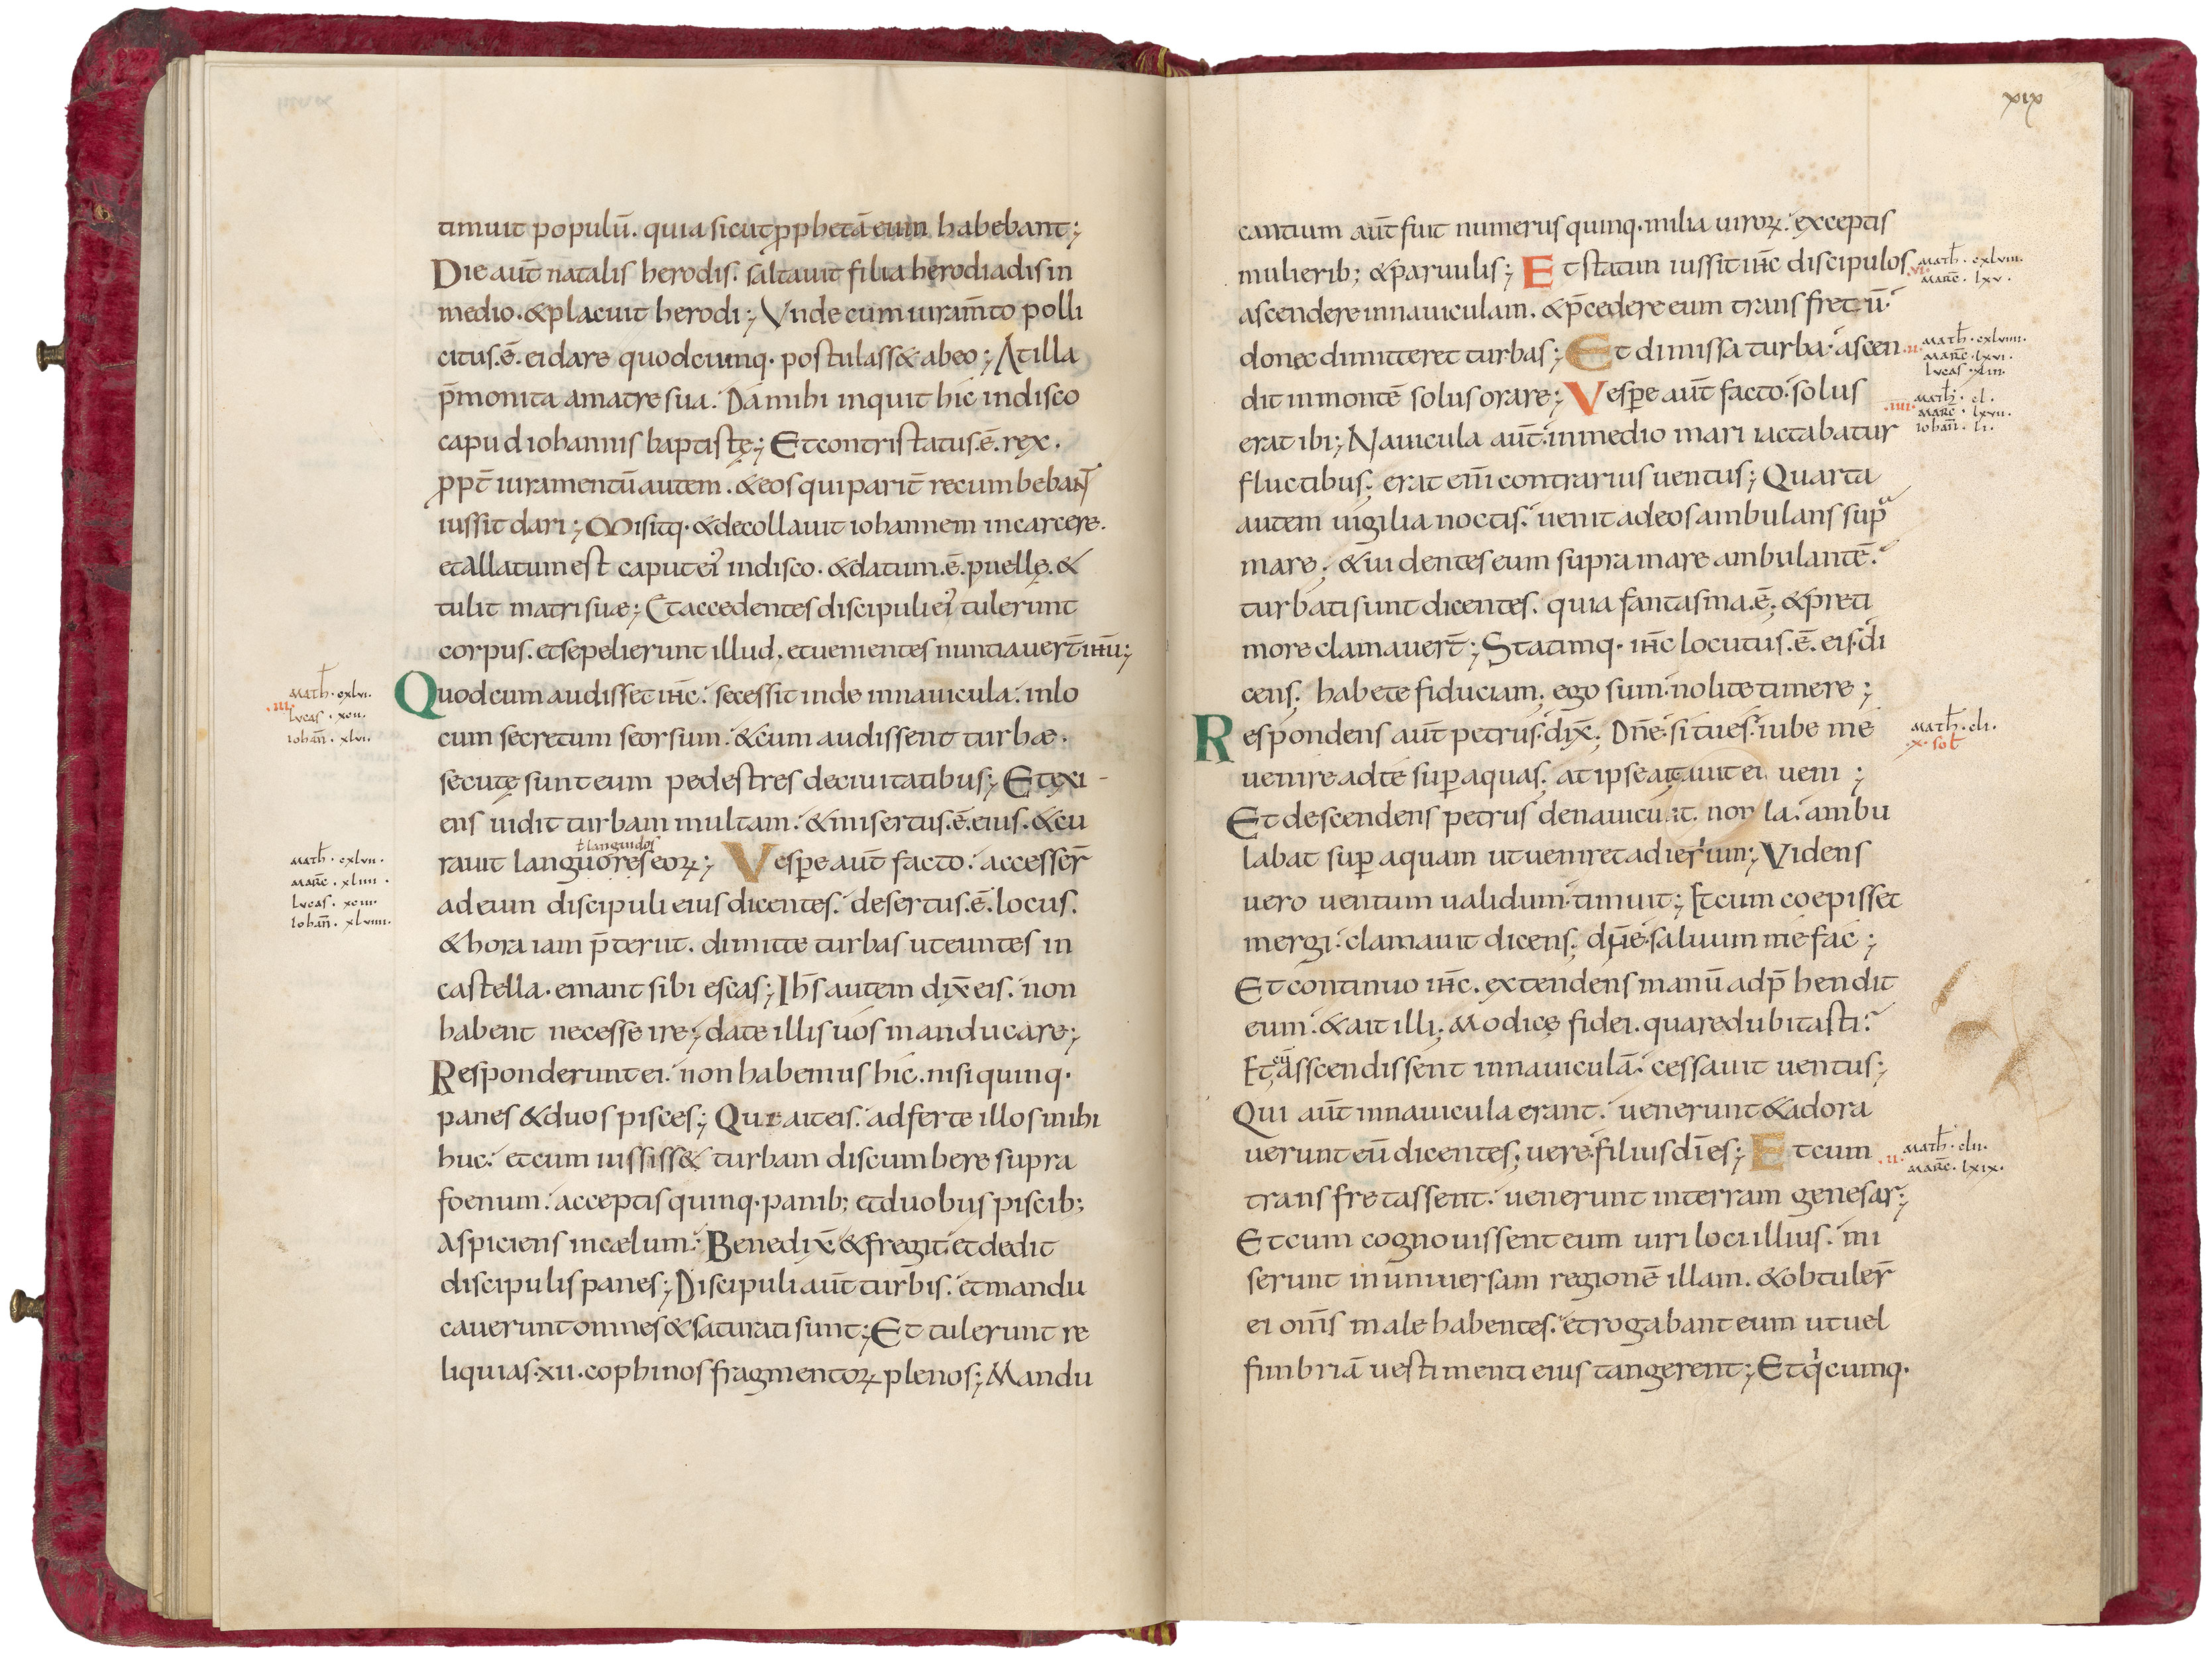 timuit populū. quia sicut pphetā eum habebant;
Die aut̄ natalis herodis. saltauit filia herodiadis in
medio. & placuit herodi; Vnde cum iuram̄to polli
citus. ē. ei dare quodcumq. postulass& ab eo; At illa
p̄monita a matre sua. Da mihi inquit hic in disco
capud iohannis baptistę; Et contristatus. ē. rex.
ppt̄ iuramentū autem. & eos qui parit̄ recumbebant
iussit dari; Misitq. & decollauit iohannem in carcere.
et allatum est caput ei' in disco. & datum. ē. puellę. &
tulit matri suæ; Et accedentes discipuli ei' tulerunt
corpus. et sepelierunt illud. et uenientes nuntiauert̄ ihū;
math. cxlvi.
.iii.
lucas. xcii.
iohan̄. xlvi.
Quod cum audisset ihc. secessit inde in nauicula. in lo
cum secretum seorsum. & cum audissent turbæ.
secutę sunt eum pedestres de ciuitatibus; Et exi-
ens uidit turbam multam. & misertus. ē. eius. & cu
ł languidos
rauit languores eoꝝ; Vespe aut̄ facto. accesser̄
math. cxlvii.
marc̄. xliiii.
lucas. xciii.
iohan̄. xlviiii.
ad eum discipuli eius dicentes. desertus. ē. locus.
& hora iam p̄teriit. dimitte turbas ut euntes in
castella. emant sibi escas; Ihs autem dix̄ eis. non
habent necesse ire; date illis uos manducare;
Responderunt ei. non habemus hic. nisi quinq.
panes & duos pisces; Qui ait eis. adferte illos mihi
huc. et cum iussiss& turbam discumbere supra
foenum. acceptis quinq. panib; et duobus piscib;
Aspiciens in cælum. Benedix̄ & fregit et dedit
discipulis panes; Discipuli aut̄ turbis. et mandu
cauerunt omnes & saturati sunt; Et tulerunt re
liquias. xii. cophinos fragmentoꝝ plenos; Mandu
xix
cantium aut̄ fuit numerus quinq. milia uiroꝝ. exceptis
mulierib; & paruulis; Et statim iussit ihc discipulos
.vi.
math. cxlviii.
marc̄. lxv.
ascendere in nauiculam. & p̄cedere eum trans fretū.
donec dimitteret turbas; Et dimissa turba. ascen
.ii.
math. cxlviiii.
marc̄. lxvi.
lucas. xliii.
dit in montē solus orare; Vespe aut̄ facto. solus
.iiii.
math. cl.
marc̄. lxvii.
iohan̄. li.
erat ibi; Nauicula aut̄ in medio mari iactabatur
fluctibus; erat eni̅ contrarius uentus; Quarta
autem uigilia noctis. uenit ad eos ambulans supᵃ
mare; & uidentes eum supra mare ambulantē.
turbati sunt dicentes. quia fantasma. ē; & pre ti
more clamauert̄; Statimq. ihc locutus. ē. eis. di
cens; habete fiduciam; ego sum nolite timere;
Respondens aut̄ petrus. dix̄; Dn̄e si tu es. iube me
math. cli.
.x. sol̄
uenire ad te sup aquas; at ipse ait ei ueni;
Et descendens petrus de nauicula. ambu
labat sup aquam ut ueniret ad iesum; Videns
uero uentum ualidum timuit; Et cum coepisset
mergi. clamauit dicens; dn̄e saluum me fac;
Et continuo ihc. extendens manū adp̄hendit
eum. & ait illi; Modicę fidei. quare dubitasti.
cū
Et asscendissent in nauiculā. cessauit uentus;
Qui aut̄ in nauicula erant. uenerunt & adora
uerunt eū dicentes; uere filius dī es; Et cum
.ii.
math. clii.
marc̄. lxix.
trans fretassent. uenerunt in terram genesar;
Et cum cognouissent eum uiri loci illius. mi
serunt in uniuersam regionē illam. & obtuler̄
ei omīs male habentes. et rogabant eum ut uel
fimbriā uestimenti eius tangerent; Et qicumq.